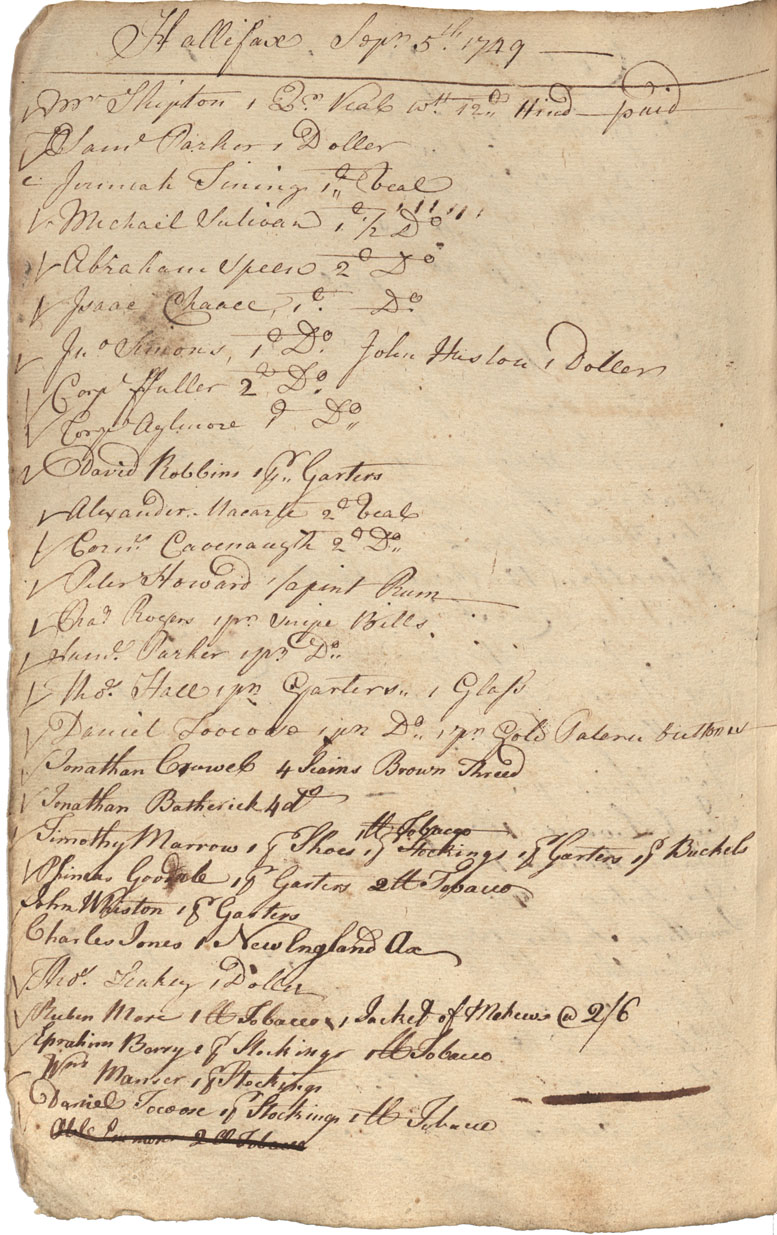 Hallifax Sepr. 5th 1749
Mr Shipton 1 Qr Veal wtt 12d Hind paid
Saml Parker 1 Doller
Jeremiah 1d Veal
Michael Sulivan 1d 1/2 Do
Abraham Speen 2d Do
Isaac Chaace, 1d Do
Jno Simons, 1d Do. John Huston 1 Doller
Corpl ffuller 2d Do
Corpl Aylmore d Do
David Robbins 1 pr. Garters
Alexander Macarte 2d Veal
Corns. Cavenaugth 2d Do.
Peter Howard 1/2 pint Rum
Chas Rogers 1 pr Bills.
Saml. Parker 1 pr Do.
Thos. Hall 1 pr Garters,, 1 Glass
Daniel Toocose 1 pr Do. 1 pr Gold buttons
Jonathan Crowel 4 Scains Brown Threed
Jonathan Batherick 4 do
1 tt Tobacco
Timothy Marrow 1 pr Shoes 1 pr Stockings 1 pr Garters 1 pr Buckels
Phineas Goodale 1 pr Garters 2 tt Tobacco
John Whiston 1 pr Garters
Charles Jones 1 New England Ax
Thos. 1 Doller
Ruben More 1 tt Tobacco 1 Jacket of @ 2/6
Ephraim Barry 1 pr Stockings 1 tt Tobacco
Wm Manser 1 pr Stockings
Daniel Tocoose 1 pr Stockings 1 tt Tobacco
2 tt Tobacco